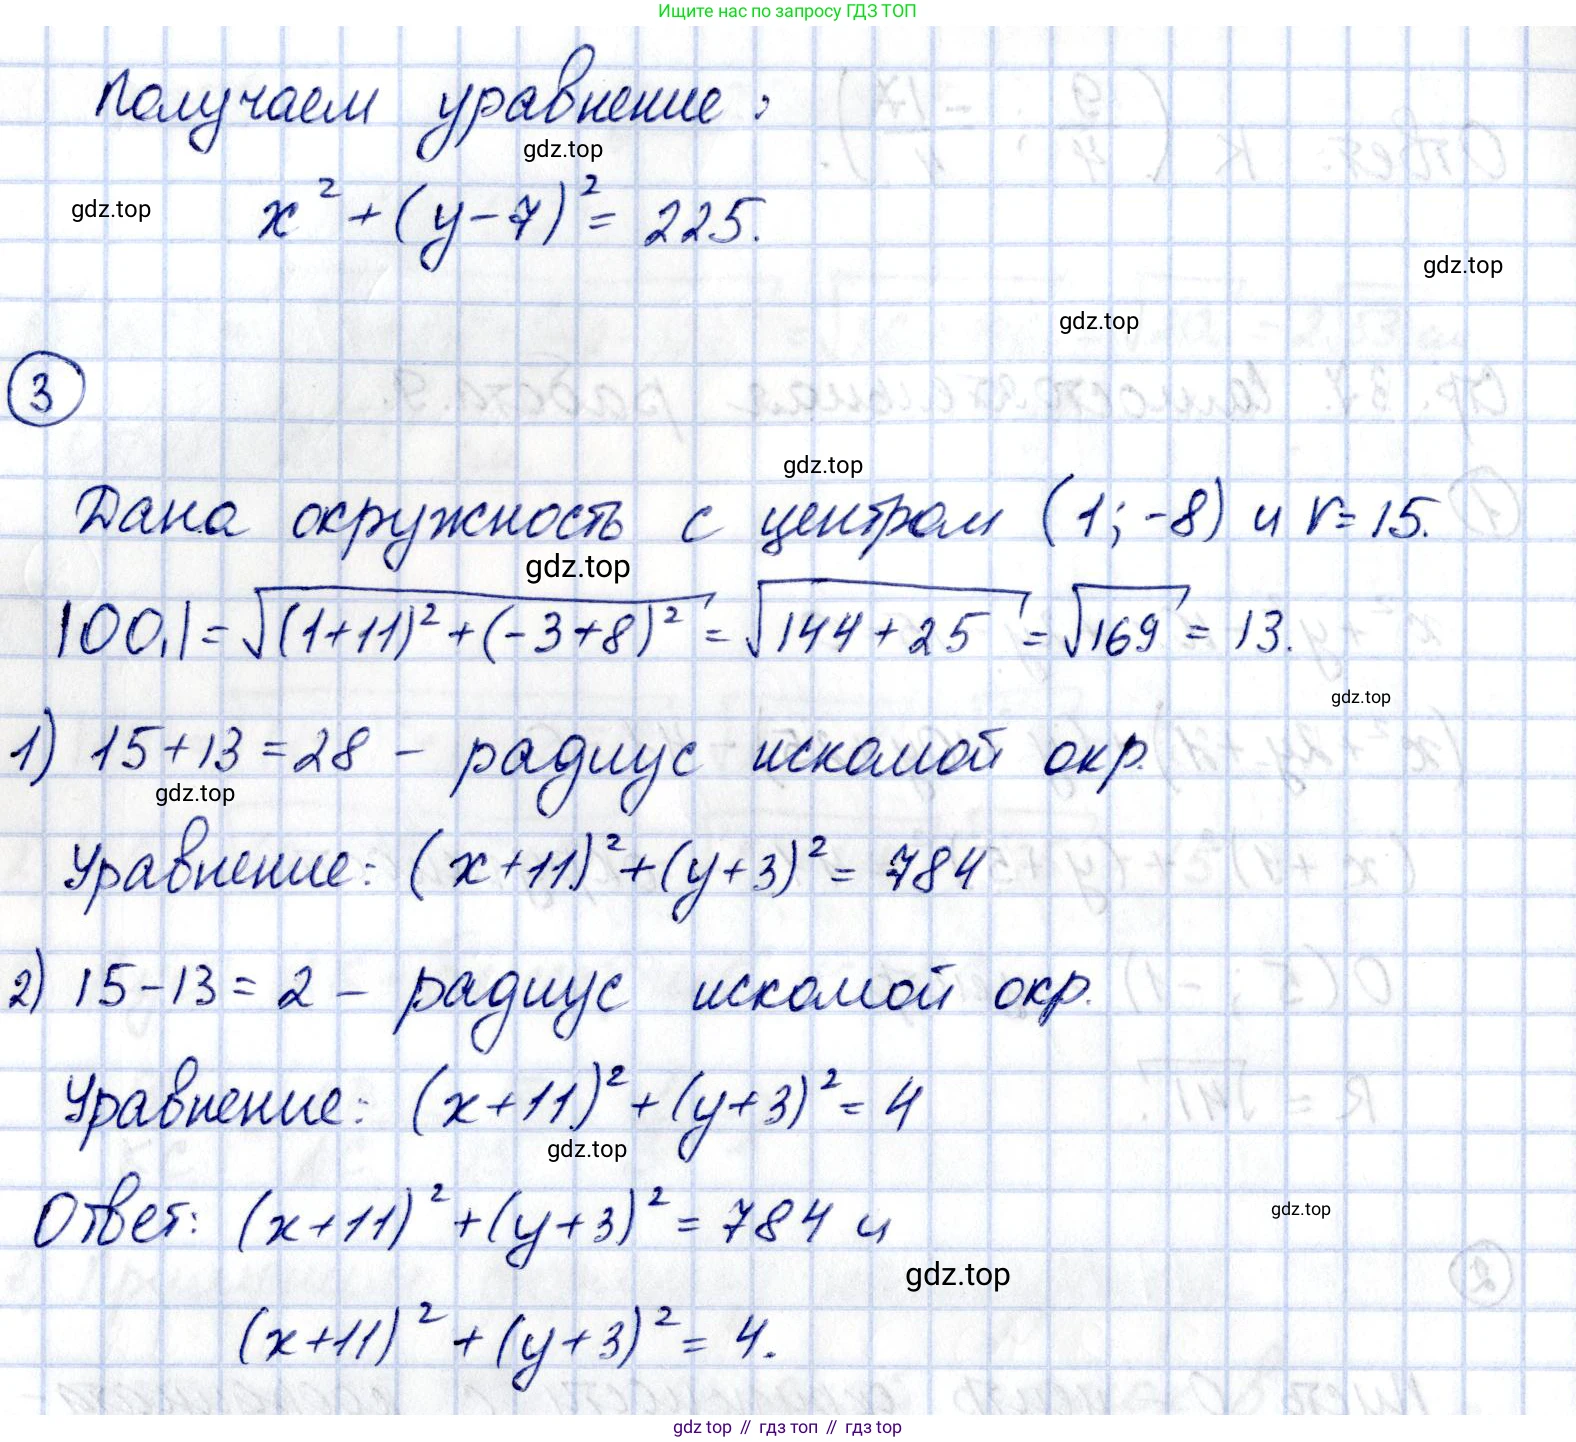 Ищите нас по запросу ГДЗ ТОП
Получаем уравнение:
gdz.top
gdz.top
x² + (y - 7)² = 225.
gdz.top
gdz.top
3
gdz.top
Дана окружность с центром (1; -8) и r = 15.
gdz.top
|OO₁| = √(1+11)² + (-3+8)² = √144 + 25 = √169 = 13.
gdz.top
1) 15 + 13 = 28 – радиус искомой окр.
gdz.top
Уравнение: (x+11)² + (y+3)² = 784
2) 15 - 13 = 2 – радиус искомой окр.
Уравнение: (x+11)² + (y+3)² = 4
gdz.top
Ответ: (x+11)² + (y+3)² = 784 и
gdz.top
gdz.top
(x+11)² + (y+3)² = 4.
gdz.top // гдз топ // гдз top